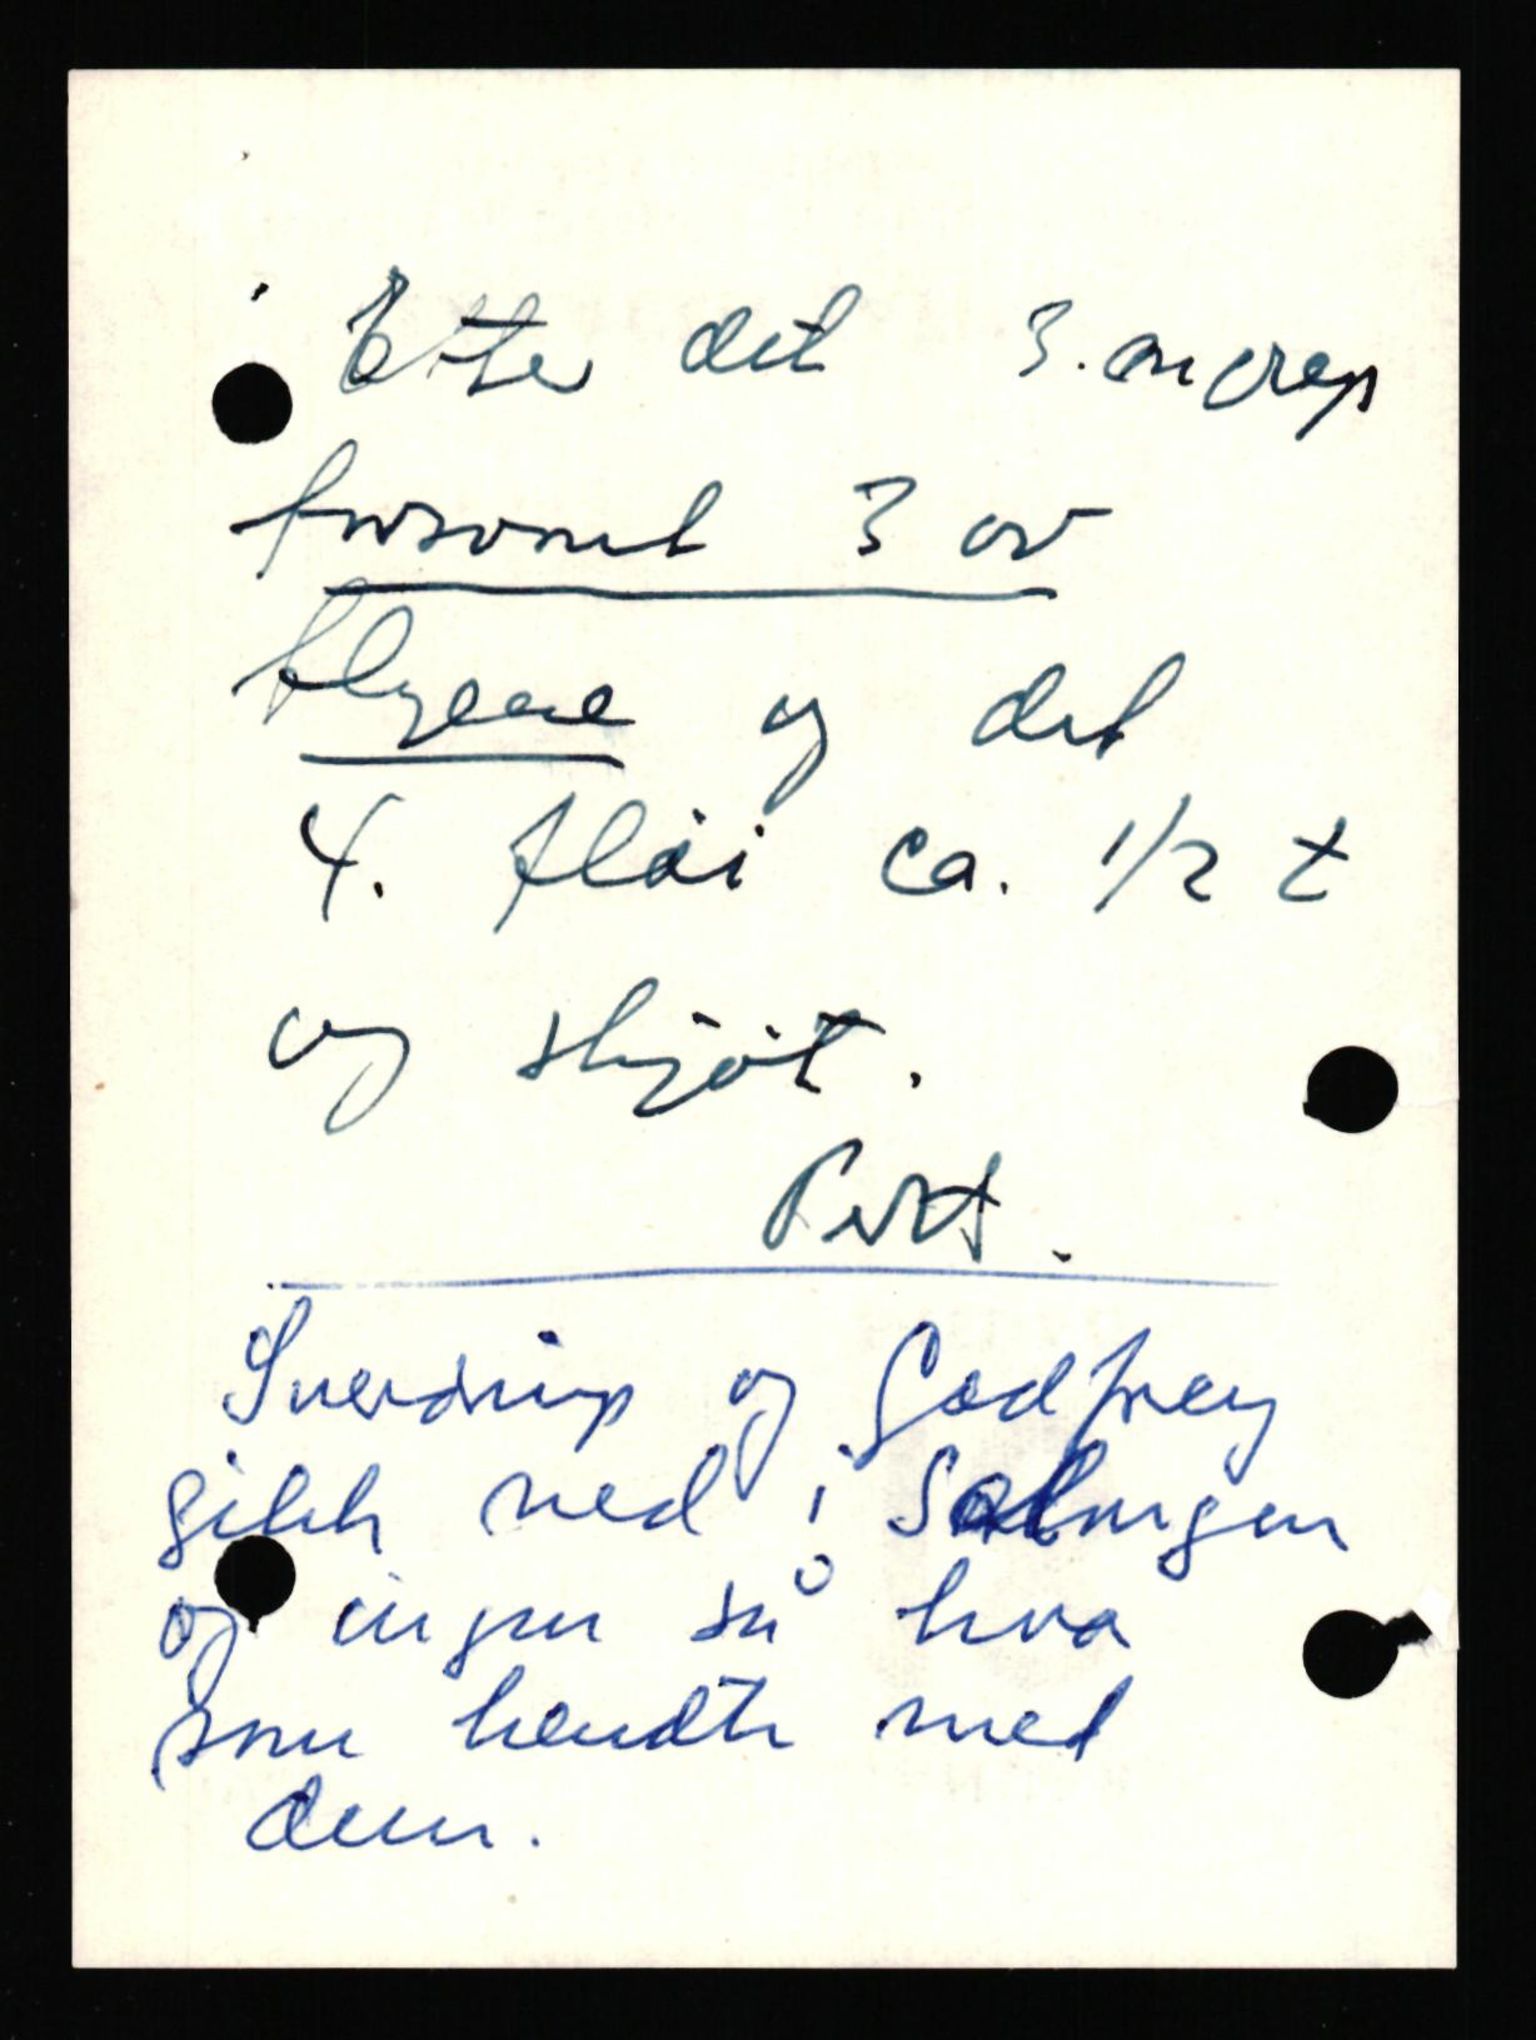 Etter det 3. angrep
forsvant 3 av
flyene og det
4. fløi ca. 1/2 t
og skjøt.
Pert.
Sverdrup og Godfrey
gikk ned i Salongen
og ingen så hva
som hendte med
dem.